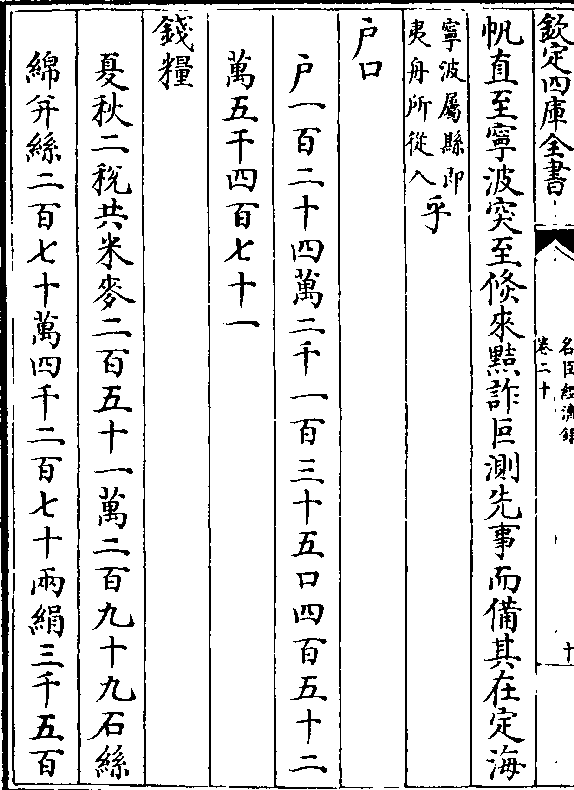 欽定四庫全書
名臣經濟錄
卷二十
十
帆直至寧波突至倐來黠詐叵測先事而備其在定海
寧波屬縣即
夷舟所從入
乎
户口
户一百二十四萬二千一百三十五口四百五十二
萬五千四百七十一
錢糧
夏秋二稅共米麥二百五十一萬二百九十九石絲
綿并絲二百七十萬四千二百七十兩絹三千五百